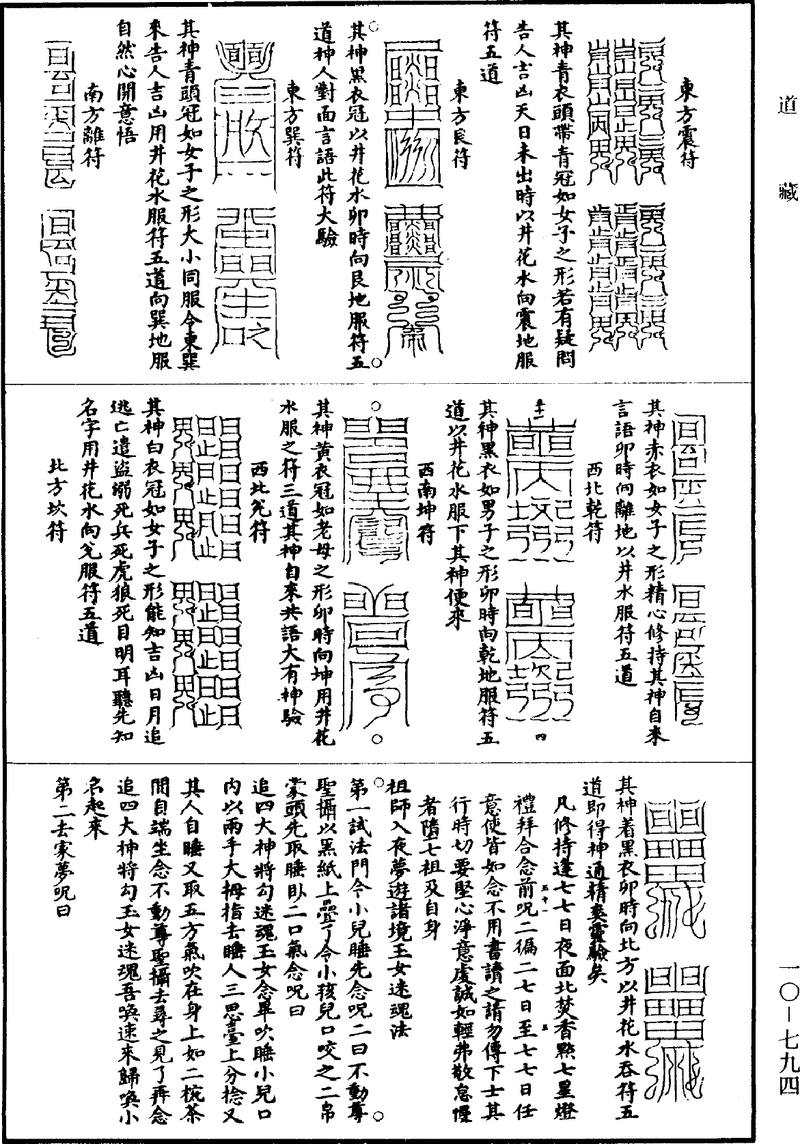 道藏
東方震符
其神青衣頭帶青冠如女子之形若有疑問
告人吉凶天日未出時以井花水向震地服
符五道
東方艮符
其神黑衣冠以井花水卯時向艮地服符五
道神人對面言語此符大驗
東方巽符
其神青頭冠如女子之形大小同服令東巽
來告人吉凶用井花水服符五道向巽地服
自然心開意悟
南方離符
其神赤衣如女子之形精心修持其神自來
言語卯時向離地以井水服符五道
西北乾符
其神黑衣如男子之形卯時向乾地服符五
道以井花水服下其神便來
西南坤符
其神黃衣冠如老母之形卯時向坤用井花
水服之符三道其神自來共語大有神驗
西北兌符
其神白衣冠如女子之形能知吉凶日月追
逃亡遣盜溺死兵死虎狼死目明耳聽先知
名字用井花水向兌服符五道
北方坎符
其神着黑衣卯時向北方以井花水吞符五
道即得神通精英靈驗矣
凡修持逢七七日夜面北焚香點七星燈
禮拜合念前呪二徧二七日至七七日任
意使皆如念不用書讀之請勿傳下士其
行時切要堅心淨意虔誠如輕弗敬怠慢
者隨七祖及自身
祖師入夜夢遊諸境玉女迷魂法
第一試法門令小兒睡先念呪二曰不動尊
聖攝以黑紙上疊了令小孩兒口咬之二帛
蒙頭先取睡臥二口氣念呪曰
追四大神將勾迷魂玉女念畢吹睡小兒口
內以兩手大拇指去睡人三思臺上分捻又
其人自睡又取五方氣吹在身上如二椀茶
間自端坐念不動尊聖攝去尋之見了再念
追四大神將勾玉女迷魂吾喚速來歸喚小
名起來
第二去家夢呪曰
一〇－七九四